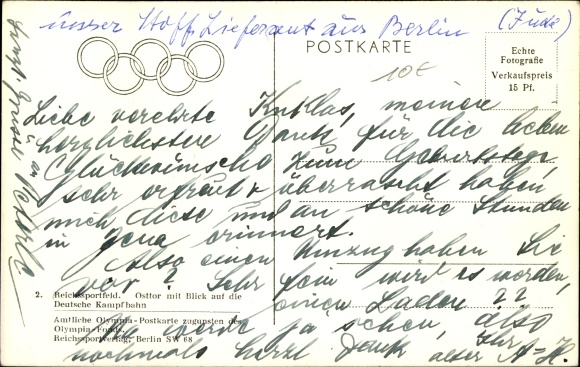 unser Stoff Lieferant aus Berlin (Jude)
POSTKARTE
Echte
Fotografie
Verkaufspreis
15 Pf.
10€
Liebe verehrte, meinen
herzlichsten Dank, für die lieben
Glückwünsche zum Geburtstage,
sehr erfreut & überrascht haben
mich diese und an schöne Stunden
in Jena erinnert.
Also einen Umzug haben Sie
vor? Sehr fein wird es werden,
einen Laden??
2. Reichssportfeld. Osttor mit Blick auf die
Deutsche Kampfbahn
Amtliche Olympia-Postkarte zugunsten des
Olympia-Fonds.
Reichssportverlag, Berlin SW 68
werde ja sehen, also
nochmals herzl Dank Ihr
alter A-H.